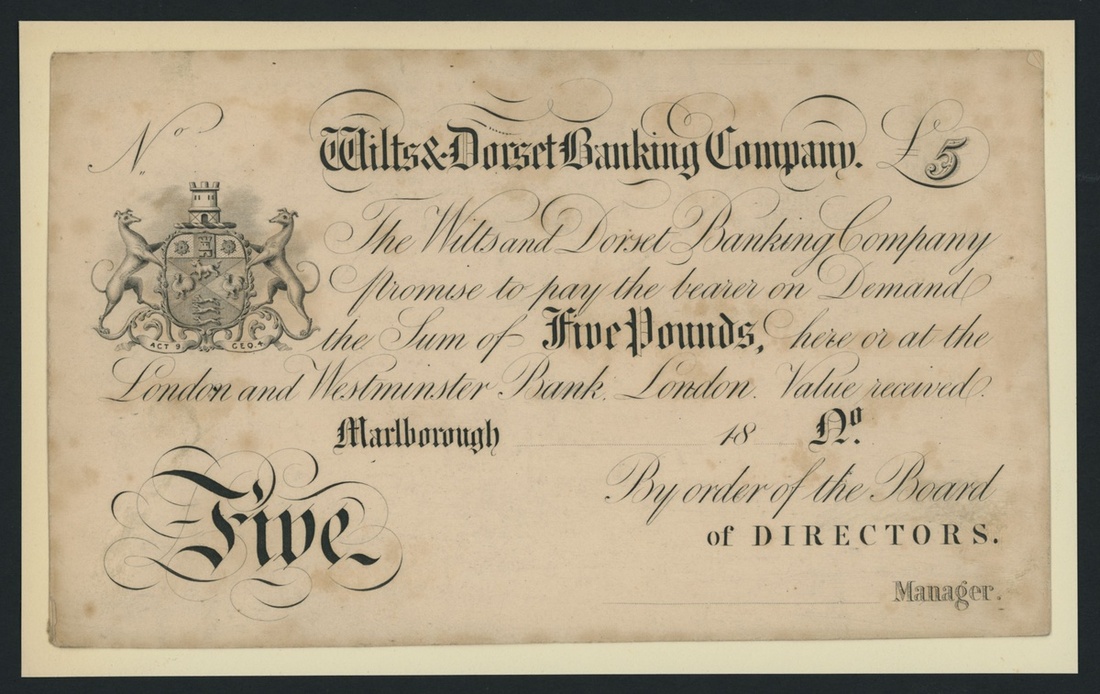 No.
Wilts & Dorset Banking Company. £5
The Wilts and Dorset Banking Company
Promise to pay the bearer on Demand
the Sum of Five Pounds, here or at the
ACT 9 GEO. 4
London and Westminster Bank. London. Value received.
Marlborough 18 No.
Five
By order of the Board
of DIRECTORS.
Manager.